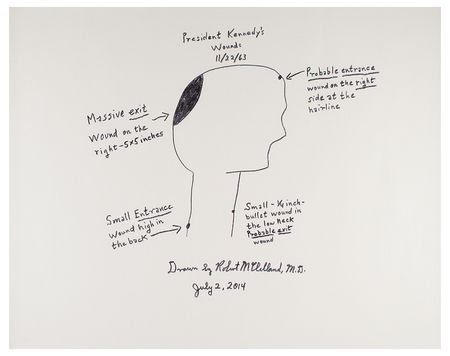 President Kennedy's
Wounds
11/22/63
Probable entrance
wound on the right
side at the
hairline
Massive exit
wound on the
right-5x5 inches
Small Entrance
wound high in
the back
Small - 1/4 inch-
bullet wound in
the low neck
Probable exit
wound
Drawn by Robert McClelland, M.D.
July 2, 2014